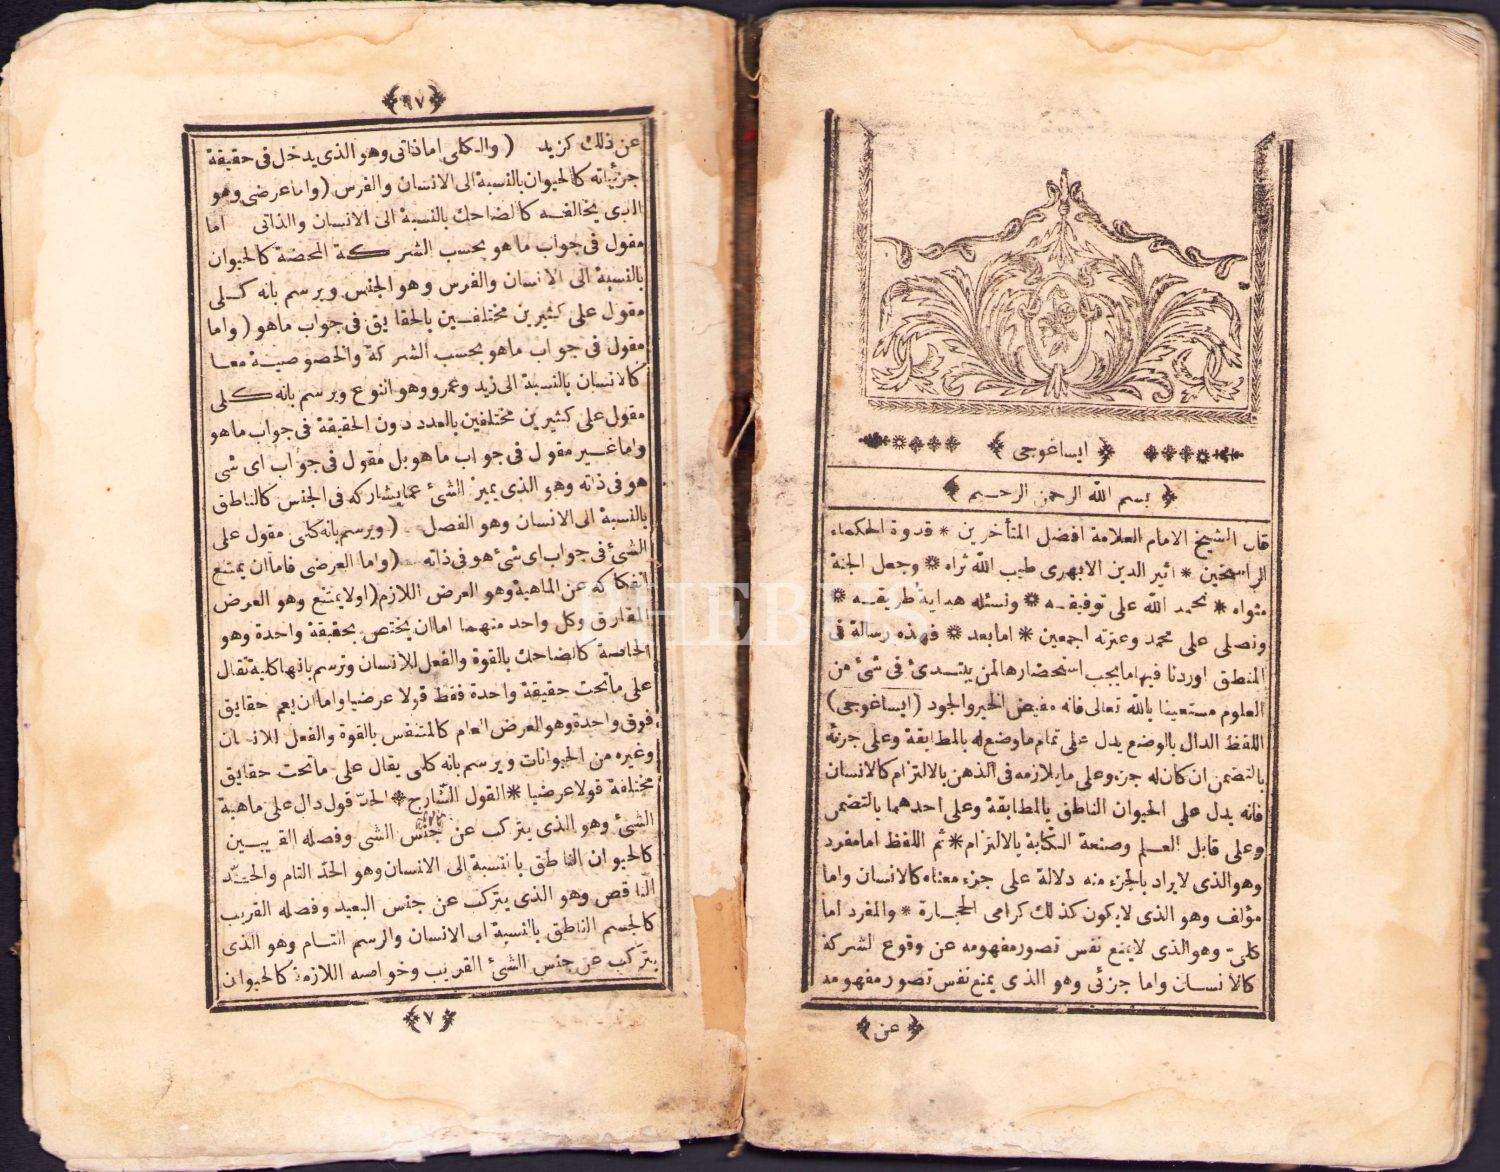 ايساغوجى
بسم الله الرحمن الرحيم
قال الشيخ الامام العلامة افضل المتأخرين * قدوة الحكماء
الراسخين * اثير الدين الابهرى طيب الله ثراه * وجعل الجنة
مثواه * نحمد الله على توفيقه * ونسئله هداية طريقه *
ونصلى على محمد وعترته اجمعين * اما بعد * فهذه رسالة فى
المنطق اوردنا فيها ما يجب استحضارها لمن يبتدئ فى شئ من
العلوم مستعينا بالله تعالى فانه مفيض الخير والجود (ايساغوجى)
اللفظ الدال بالوضع يدل على تمام ما وضع له بالمطابقة وعلى جزئه
بالتضمن ان كان له جزء وعلى ما يلازمه فى الذهن بالالتزام كالانسان
فانه يدل على الحيوان الناطق بالمطابقة وعلى احدهما بالتضمن
وعلى قابل العلم وصنعة الكتابة بالالتزام * ثم اللفظ اما مفرد
وهو الذى لا يراد بالجزء منه دلالة على جزء معناه كالانسان واما
مؤلف وهو الذى لا يكون كذلك كرامى الحجارة * والمفرد اما
كلىّ وهو الذى لا يمنع نفس تصور مفهومه عن وقوع الشركة
كالانسان واما جزئى وهو الذى يمنع نفس تصور مفهومه
عن
PHEBUS
٩٧
عن ذلك كزيد ( والكلى اما ذاتى وهو الذى يدخل فى حقيقة
جزئياته كالحيوان بالنسبة الى الانسان والفرس (واما عرضى وهو
الذى يخالفه كالضاحك بالنسبة الى الانسان والذاتى اما
مقول فى جواب ما هو بحسب الشركة المحضة كالحيوان
بالنسبة الى الانسان والفرس وهو الجنس ويرسم بانه كلى
مقول على كثيرين مختلفين بالحقايق فى جواب ما هو (واما
مقول فى جواب ما هو بحسب الشركة والخصوصية معا
كالانسان بالنسبة الى زيد وعمرو وهو النوع ويرسم بانه كلى
مقول على كثيرين مختلفين بالعدد دون الحقيقة فى جواب ما هو
واما غير مقول فى جواب ما هو بل مقول فى جواب اى شى
هو فى ذاته وهو الذى يميز الشئ عما يشاركه فى الجنس كالناطق
بالنسبة الى الانسان وهو الفصل (ويرسم بانه كلى مقول على
الشئ فى جواب اى شئ هو فى ذاته (واما العرضى فاما ان يمتنع
انفكاكه عن الماهية وهو العرض اللازم (اولا يمتنع وهو العرض
المفارق وكل واحد منهما اما ان يختص بحقيقة واحدة وهو
الخاصة كالضاحك بالقوة والفعل للانسان وترسم بانها كلية تقال
على ما تحت حقيقة واحدة فقط قولا عرضيا واما ان يعم حقايق
فوق واحدة وهو العرض العام كالمتنفس بالقوة والفعل للانسان
وغيره من الحيوانات ويرسم بانه كلى يقال على ما تحت حقايق
مختلفة قولا عرضيا * القول الشارح * الحدّ قول دال على ماهية
الشئ وهو الذى يتركب عن جنس الشى وفصله القريبين
كالحيوان الناطق بالنسبة الى الانسان وهو الحدّ التام والحدّ
النّاقص وهو الذى يتركب عن جنس البعيد وفصله القريب
كالجسم الناطق بالنسبة الى الانسان والرسم التام وهو الذى
يتركب عن جنس الشئ القريب وخواصه اللازمة كالحيوان
٧